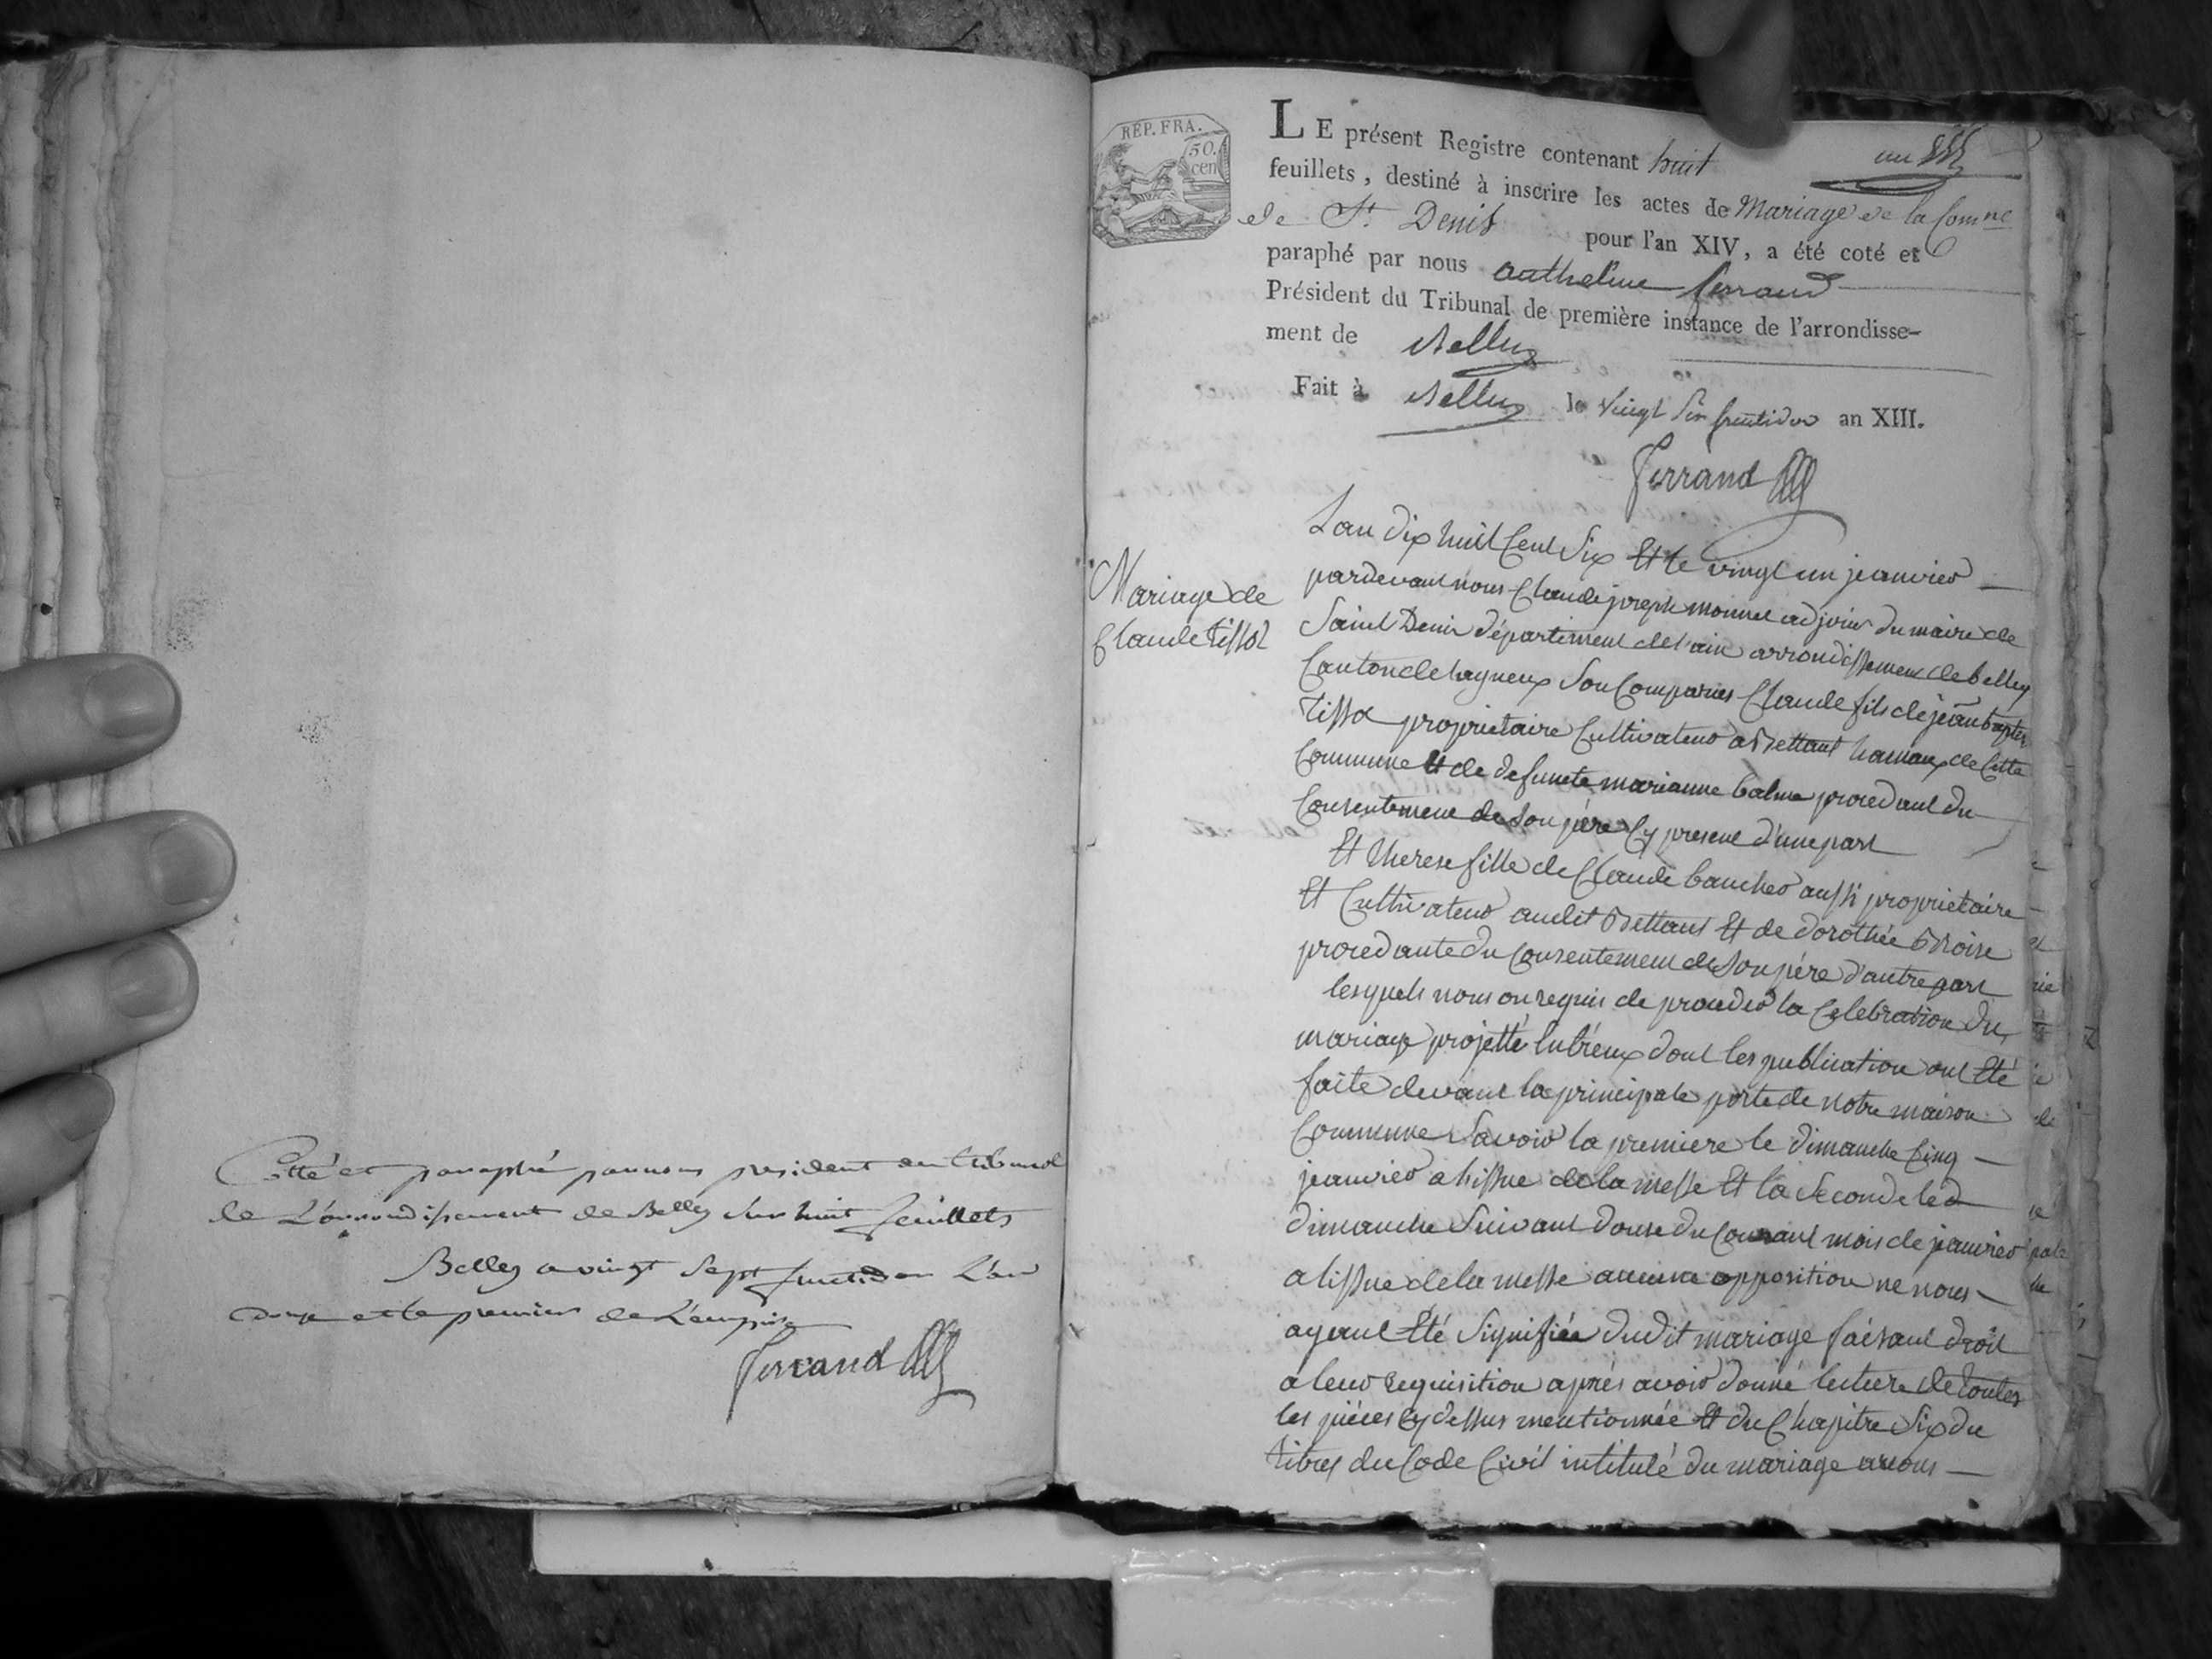 Cotté et paraphé par nous president du tribunal
de L'arrondissement de Belley sur huit feuillets
Belley ce vingt sept fructidor L'an
douze et le premier de L'empire
Ferrand
REP. FRA.
50.
cen
un
LE présent Registre contenant huit
feuillets, destiné à inscrire les actes de Mariage de la Comne
de St. Denis pour l'an XIV, a été coté et
paraphé par nous anthelme ferrand
Président du Tribunal de première instance de l'arrondisse-
ment de Belley
Fait à Belley le vingt six fructidor an XIII.
Ferrand
Mariage de
Claude tissot
Lan dix huit Cent Six Et le vingt un jeanvier
pardevant nous Claude joseph monnet adjoint du maire de
Saint Denis département de l'ain arrondissement de belley
Canton de lagneux Son Comparus Claude fils de jean baptiste
tissot proprietaire Cultivateur a Bettant hamaux de Cette
Commune Et de defuncte marianne balme procedant du
Consentement de Son pére Cy present d'une part
Et therese fille de Claude baucher aussi proprietaire
Et Cultivateur audit Bettant Et de dorothée
procedante du Consentement de Son pére d'autre part
lesquels nous on requis de proceder la Celebration du
mariage projetté Entreux dont les publication ont Eté
faite devant la principale porte de notre maison
Commune Savoir la premiere le dimanche Cinq
jeanvier a lissue de la messe Et la Seconde le
dimanche Suivant douse du Courant mois de jeanvier
a lissue de la messe aucune opposition ne nous
ayant Eté Signifiée dudit mariage faisant droit
a leur requisition aprés avoir donné lecture de toutes
les piéces Cy dessus mentionnée Et du Chapitre Six du
titres du Code Civil intitulé du mariage avons